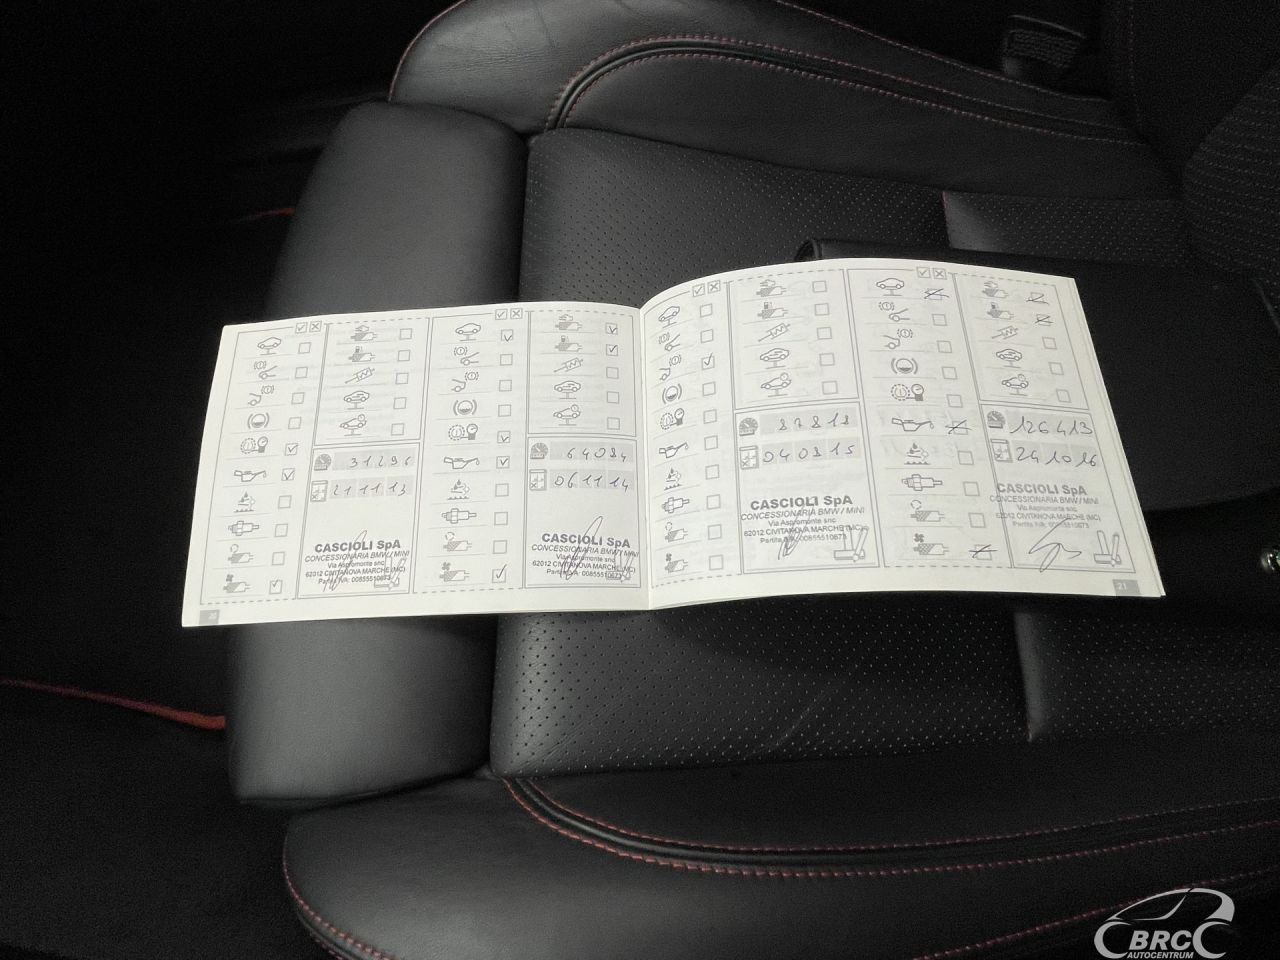 31296
211113
CASCIOLI SpA
CONCESSIONARIA BMW / MINI
Via Aspromonte snc
62012 CIVITANOVA MARCHE (MC)
Partita IVA: 00855510673
20
64094
061114
CASCIOLI SpA
CONCESSIONARIA BMW / MINI
Via Aspromonte snc
62012 CIVITANOVA MARCHE (MC)
Partita IVA: 00855510673
87818
040815
CASCIOLI SpA
CONCESSIONARIA BMW / MINI
Via Aspromonte snc
62012 CIVITANOVA MARCHE (MC)
Partita IVA: 00855510673
126413
241016
CASCIOLI SpA
CONCESSIONARIA BMW / MINI
Via Aspromonte snc
62012 CIVITANOVA MARCHE (MC)
Partita IVA: 00855510673
21
BRC
AUTOCENTRUM